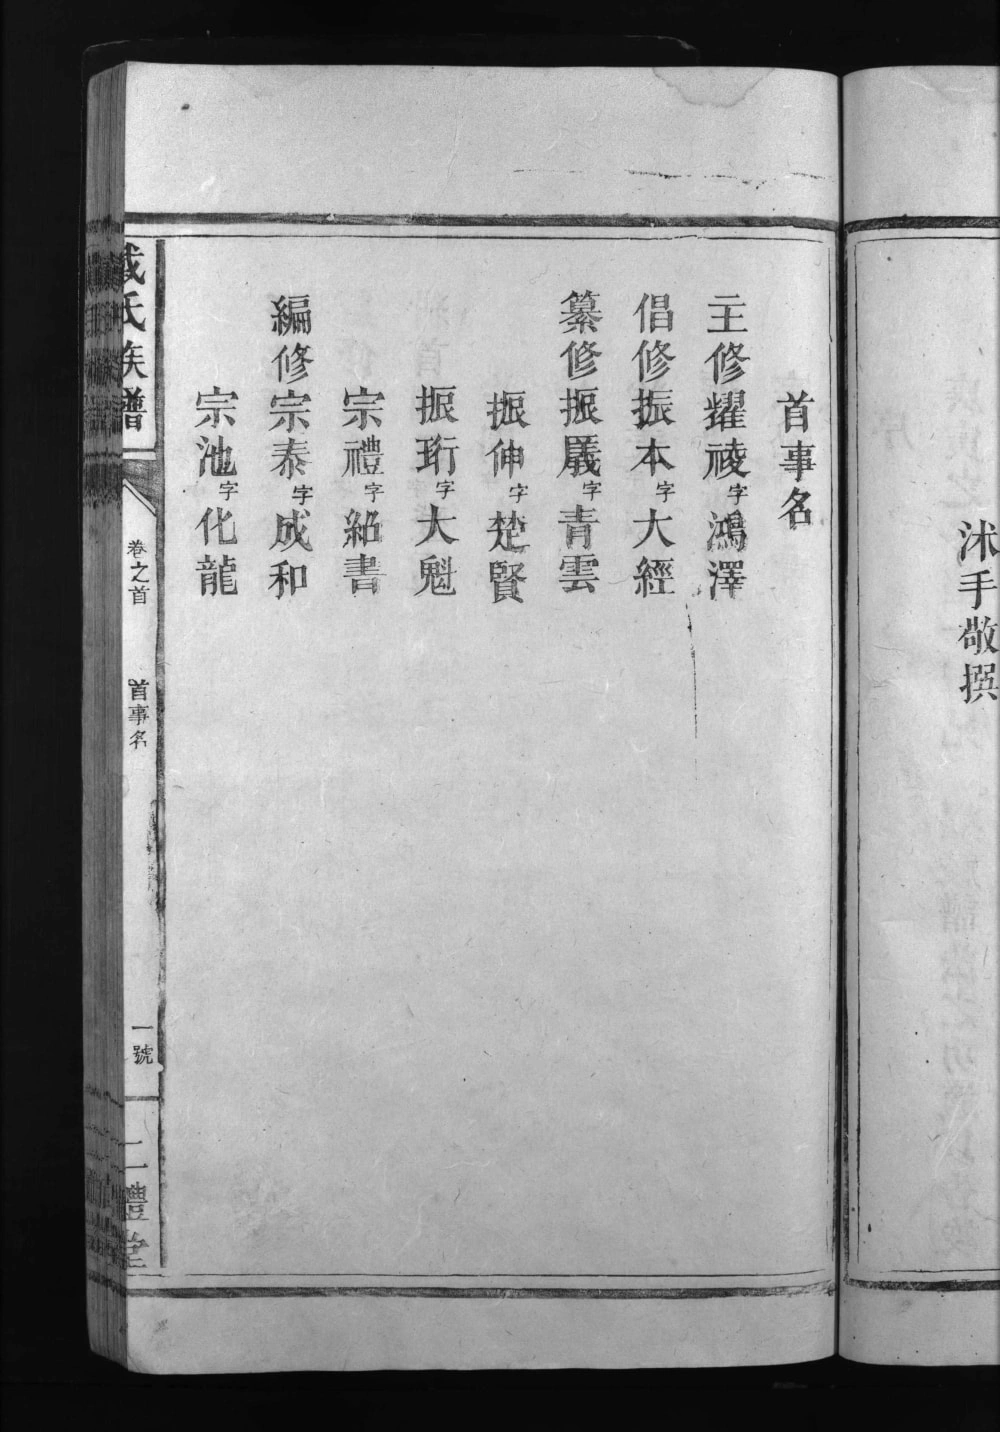 沭手敬撰
首事名
主修耀祾字鴻澤
倡修振本字大經
纂修振羲字青雲
振伸字楚賢
振珩字大魁
宗禮字紹書
編修宗泰字成和
宗池字化龍
戴氏族譜
卷之首
首事名
一號
二禮堂